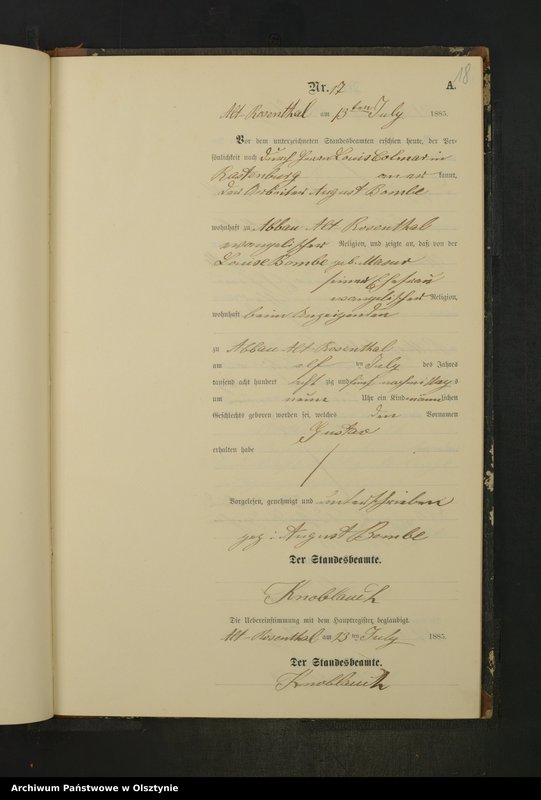 18
Nr. 17 A.
Alt Rosenthal am 13ten July 1885.
Vor dem unterzeichneten Standesbeamten erschien heute, der Per-
sönlichkeit nach durch Herrn Louis Colmar in
Rastenburg kannt,
der Arbeiter August Bombe
wohnhaft zu Abbau Alt Rosenthal
evangelischer Religion, und zeigte an, daß von der
Louise Bombe geb. Masur
seiner Ehefrau
evangelischer Religion,
wohnhaft beim Anzeigenden
zu Abbau Alt Rosenthal
am elf ten July des Jahres
tausend acht hundert acht zig und fünf nachmittags
um neun Uhr ein Kind männlichen
Geschlechts geboren worden sei, welches den Vornamen
Gustav
erhalten habe
Vorgelesen, genehmigt und unterschrieben
gez: August Bombe
Der Standesbeamte.
Knoblauch
Die Uebereinstimmung mit dem Hauptregister beglaubigt.
Alt-Rosenthal am 13ten July 1885.
Der Standesbeamte.
Knoblauch
Archiwum Państwowe w Olsztynie